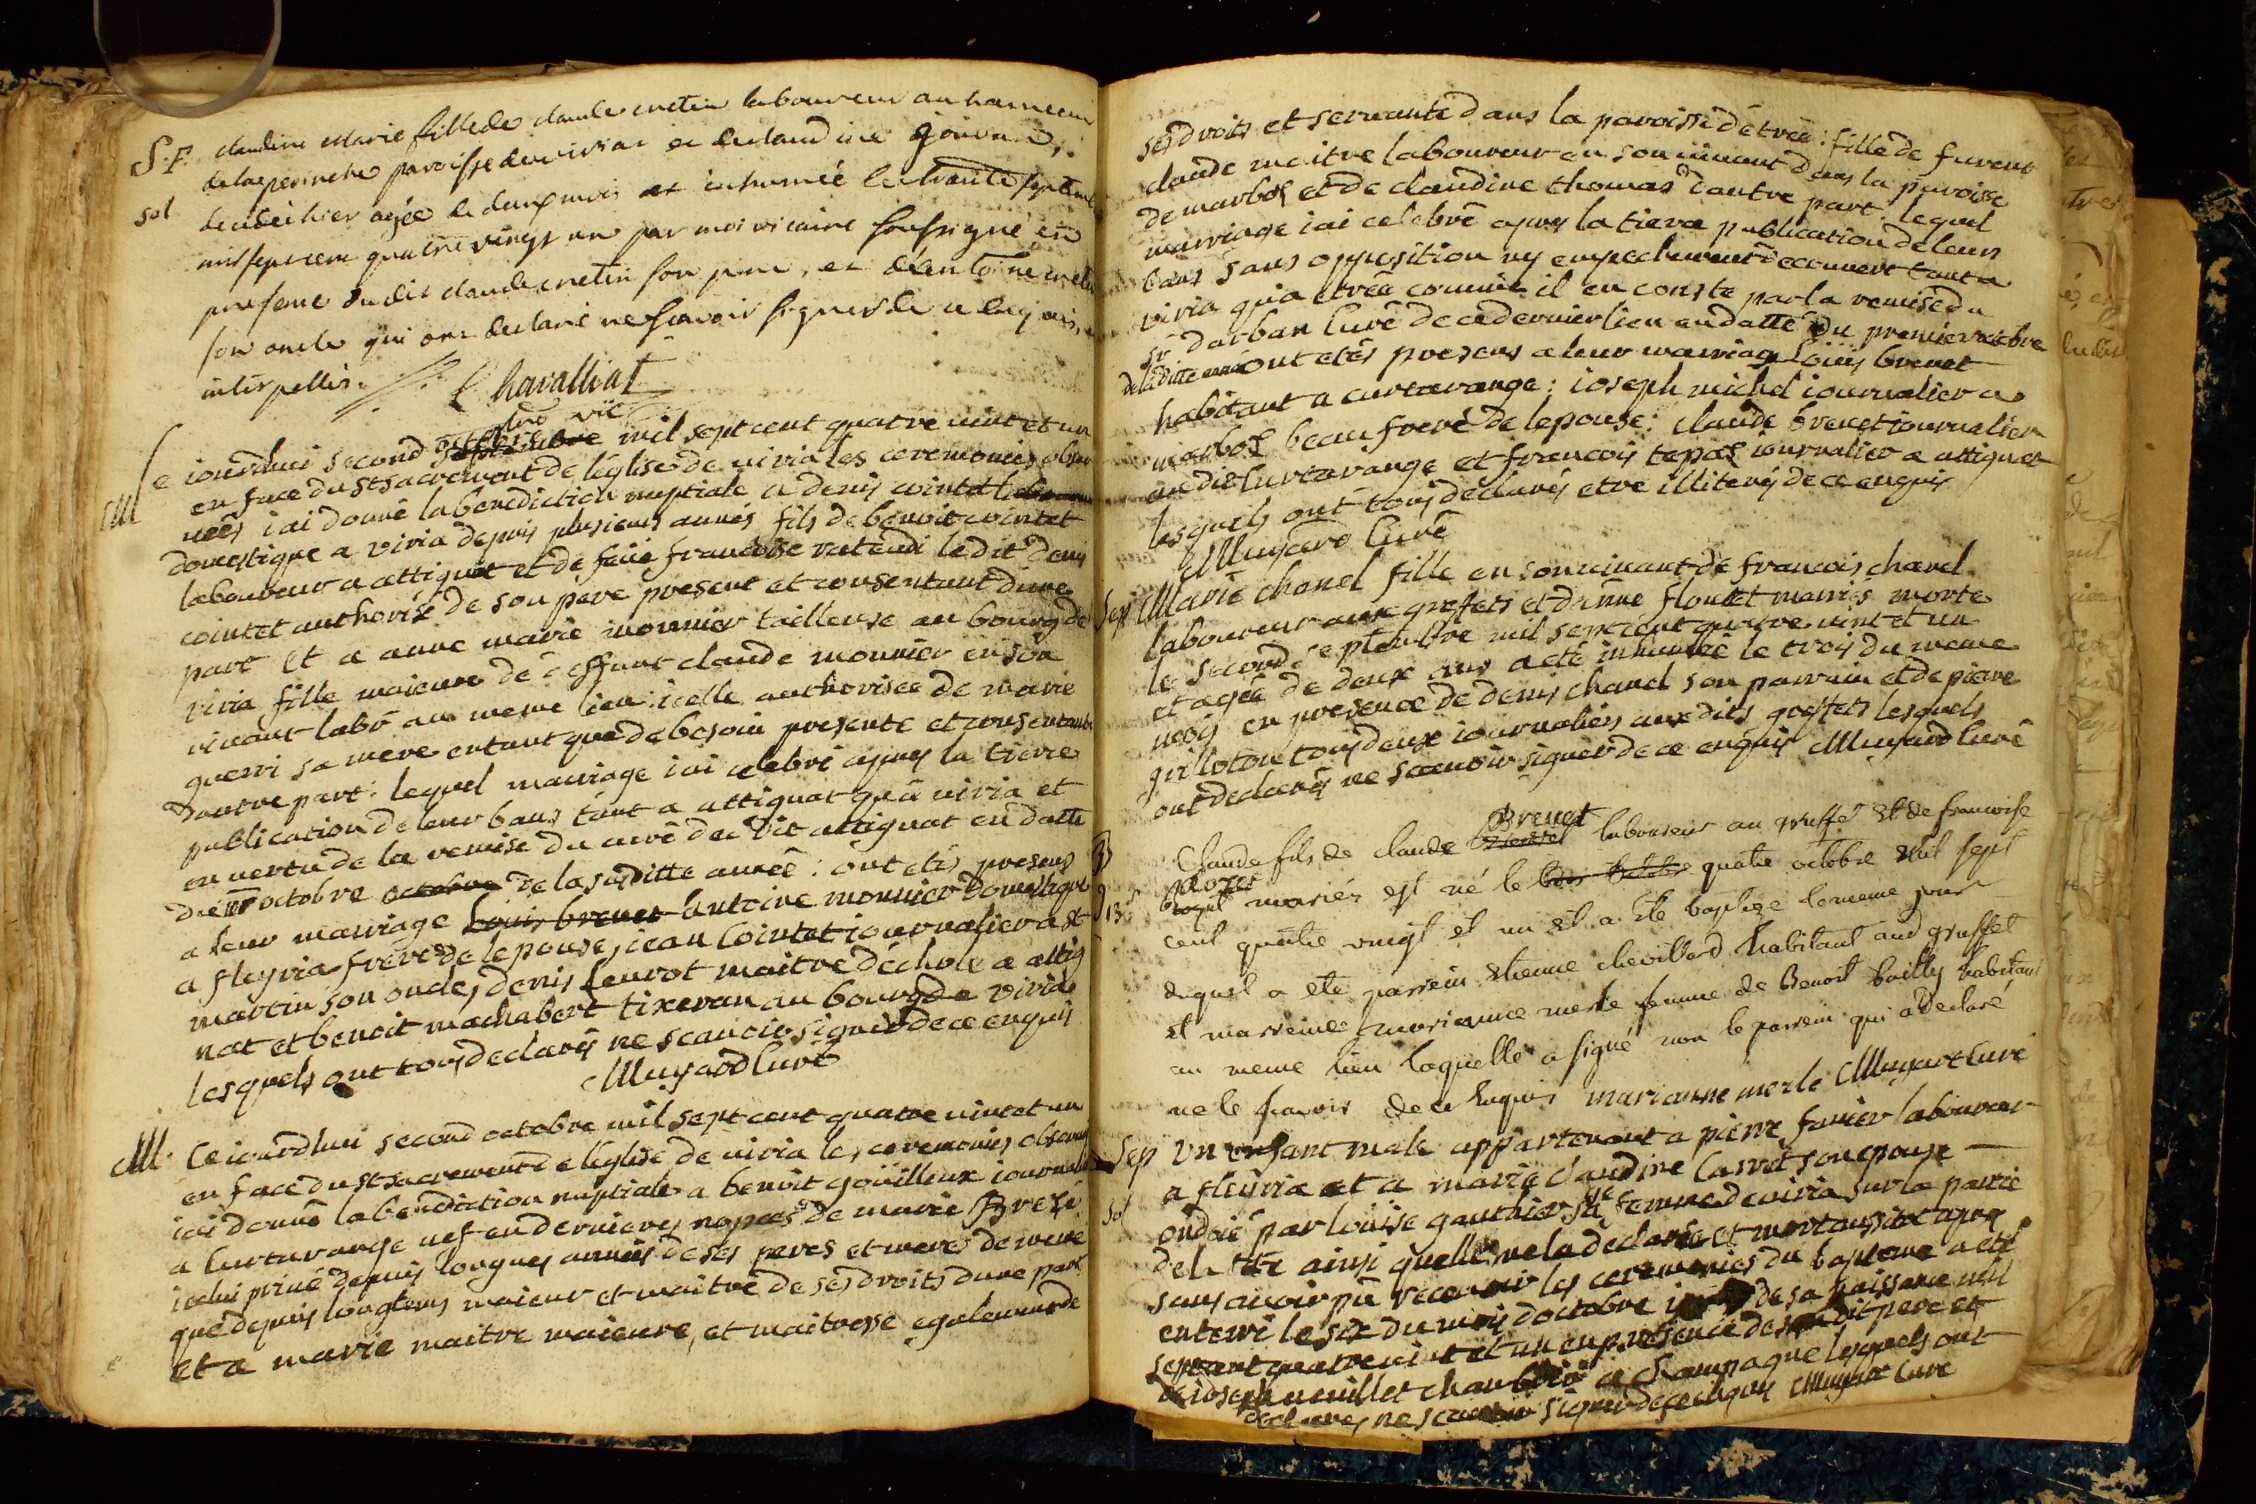 S. P.
sol
claudine Marie fille de claude cretin laboureur au hameau
de la perinche paroisse de viriat et de claudine gouvard,
decedée hier agée de deux mois et inhumée le trente septembre
mil sept cent quatre vingt un par moi vicaire soussigné en
presence dudit claude cretin son pere, et d'antoine cretin
son oncle qui ont declaré ne scavoir signer de ce enquis,
interpellés. Chavalliat
vic
M
Ce iourdhui second octobre mil sept cent quatre vint et un
en face du St sacrement de l'eglise de viria les ceremonies obser
vées iai donné la benediction nuptiale a denis cointet
domestique a viria depuis plusieurs années fils de benoit cointet
laboureur a attignat et de feüe francoise ratendi le dit denis
cointet authorisé de son pere present et consentant dune
part et a anne marie monnier tailleuse au bourg de
viria fille maieure de deffunt claude monnier en son
vivant labr au meme lieu: icelle authorisée de marie
guerri sa mere entant que de besoin presente et consentante
dautre part: lequel mariage iai celebré apres la tierce
publication de leur bans tant a attignat qu'a viria et
en vertu de la remise du curé du dit attignat en datte
du octobre octobre de la susditte année: ont etés presens
a leur mariage Louis brenet antoine monnier domestique
a fleyria frere de lepouse, iean cointet iournalier a st
martin son oncle, denis feurot maitre déchole a attig
nat et benoit machabert tixeran au bourg de viria
lesquels ont tous declarés ne scauoir signer de ce enquis
Muyard Curé
M. Ce iourdhui second octobre mil sept cent quatre vint et un
en face du St sacrement de l'eglise de viria les ceremonies observées
iai donné la benediction nuptiale a benoit goüilleux iournalier
a Curtarange uef en dernieres nopces de marie Brezi
icelui privé depuis longues années de ses peres et meres de meme
que depuis longtems maieur et maitre de ses droits dune part
et a marie maitre maieure, et maitresse egalement de
ses droits et servante dans la paroisse détrée: fille de furent
claude maitre laboureur en son vivant dans la paroisse
de marboz et de claudine thomas dautre part. lequel
mariage iai celebré apres la tierce publication de leurs
bans sans opposition ny empechement decouvert tant a
viria qu'a étrée comme il en conste par la remise du
Sr darban Curé de ce dernier lieu en datte du premier octobre
de laditte année ont etés presens a leur mariage Loüis brenet
habitant a curtarange: ioseph michel iournalier a
marboz beau frere de lepouse: claude brenet iournalier
audit Curtarange et francois tepaz iournalier a attignat
lesquels ont tous declarés etre illiterés de ce enquis
Muyard Curé
Sep Marie chanel fille en son vivant de francois chanel
laboureur aux greffets et d'anne floutet mariés morte
le second septembre mil sept cent quatre vint et un
et agée de deux ans a eté inhumée le trois du meme
mois en presence de denis chanel son parrain et de pierre
grilloton tous deux iournaliers aux dits greffets lesquels
ont declarés ne scauoir signer de ce enquis Muyard Curé
B
Claude fils de claude Brenet laboureur au greffet et de francoise
Rozet mariés est né le quatre octobre mil sept
cent quatre vingt et un et a eté baptize le meme jour
duquel a eté parrein Etienne chevillard habitant aud greffet
et marreine marianne merle femme de Benoit bailly habitant
au meme lieu laquelle a signé non le parrein qui a declaré
ne le scavoir de ce enquis marianne merle Muyard Curé
Sep
sol
Un enfant male appartenant a pierre favier laboureur
a fleüria et a marie claudine Carrot son epouse
ondoié par loüise gauthier sa femme de viria sur la partie
de la tete ainsi quelle me la declaré et mort aussitot apres
sans avoir pu recevoir les ceremonies du bapteme a eté
enterré le six du mois doctobre de sa naissance mil
sept cent quatre vint et un en presence de sondit pere et
de ioseph neuillet a Champagne lesquels ont
declarés ne scavoir signer de ce enquis Muyard Curé